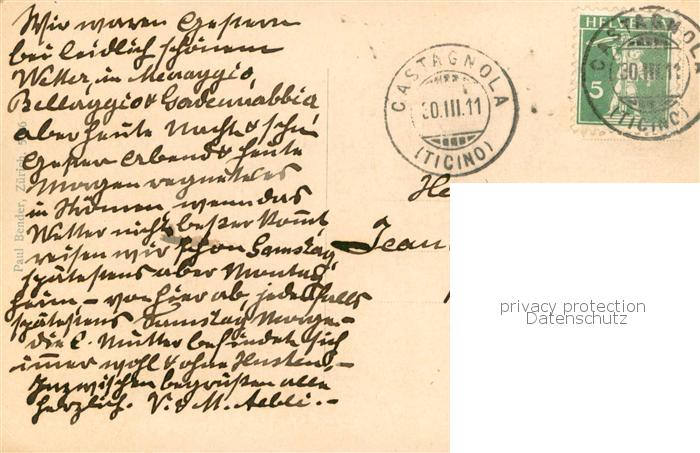 Wir waren Gestern
bei leidlich schönem
Wetter, in Menaggio,
Bellaggio & Cadennabbia
aber heute Nacht & schon
Gestern Abend & heute
Morgen regnete es
in Strömen, wenn das
Wetter nicht besser kommt
reisen wir schon Samstag
spätestens aber Montag
heim – von hier ab, jedenfalls
spätestens Samstag Morge-
die l. Mutter befindet sich
immer wohl & ohne Husten, –
Inzwischen begrüssen alle
herzlich. V. & M. Aebli. –
Paul Bender, Zürich
CASTAGNOLA
30.III.11
(TICINO)
HELVETIA
5
CASTAGNOLA
30.III.11
(TICINO)
He
Jean
privacy protection
Datenschutz